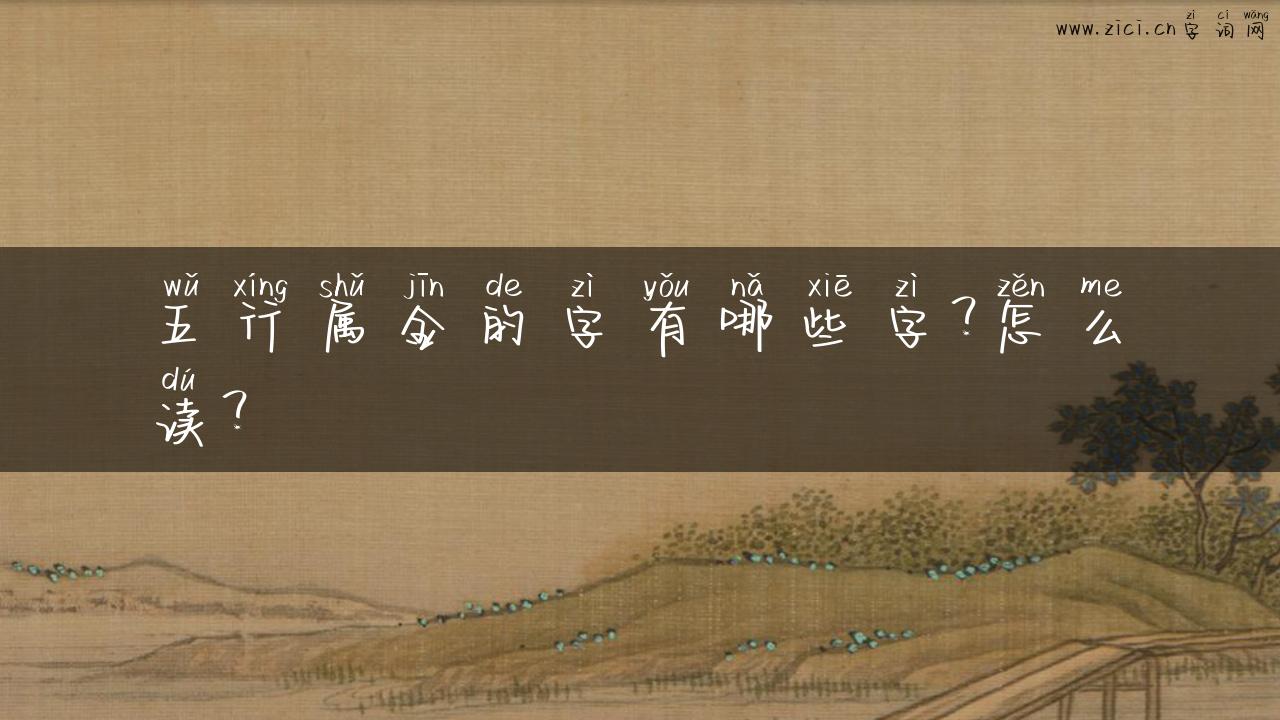 zì cí wǎng
www.zici.cn字词网
wǔ xíng shǔ jīn de zì yǒu nǎ xiē zì zěn me
五行属金的字有哪些字?怎么
dú
读?